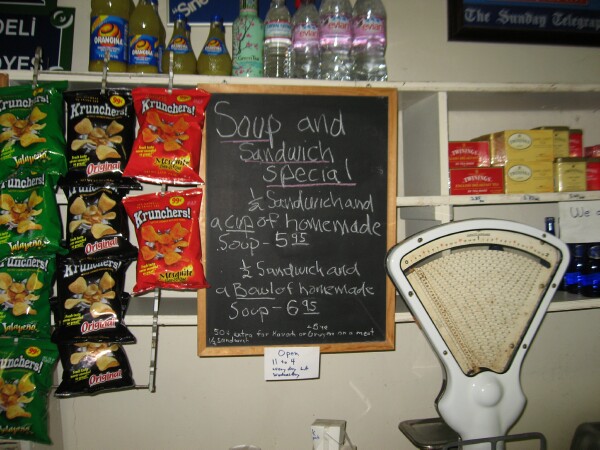 DELI
ORANGINA
ORANGINA
The Sunday Telegraph
evian
evian
evian
Krunchers!
Jalapeño
Krunchers!
Jalapeño
Krunchers!
Jalapeño
Krunchers!
99¢
Krunchers!
Original
Krunchers!
Original
Krunchers!
Original
Krunchers!
Original
99¢
Krunchers!
Mesquite
Krunchers!
Mesquite
Soup and
Sandwich
special
½ Sandwich and
a cup of homemade
Soup - 5.95
½ Sandwich and
a Bowl of homemade
Soup - 6.95
50¢ extra for
on a meat
½ sandwich
Open
11 to 4
every day but
Wednesday
TWININGS
TWININGS
We